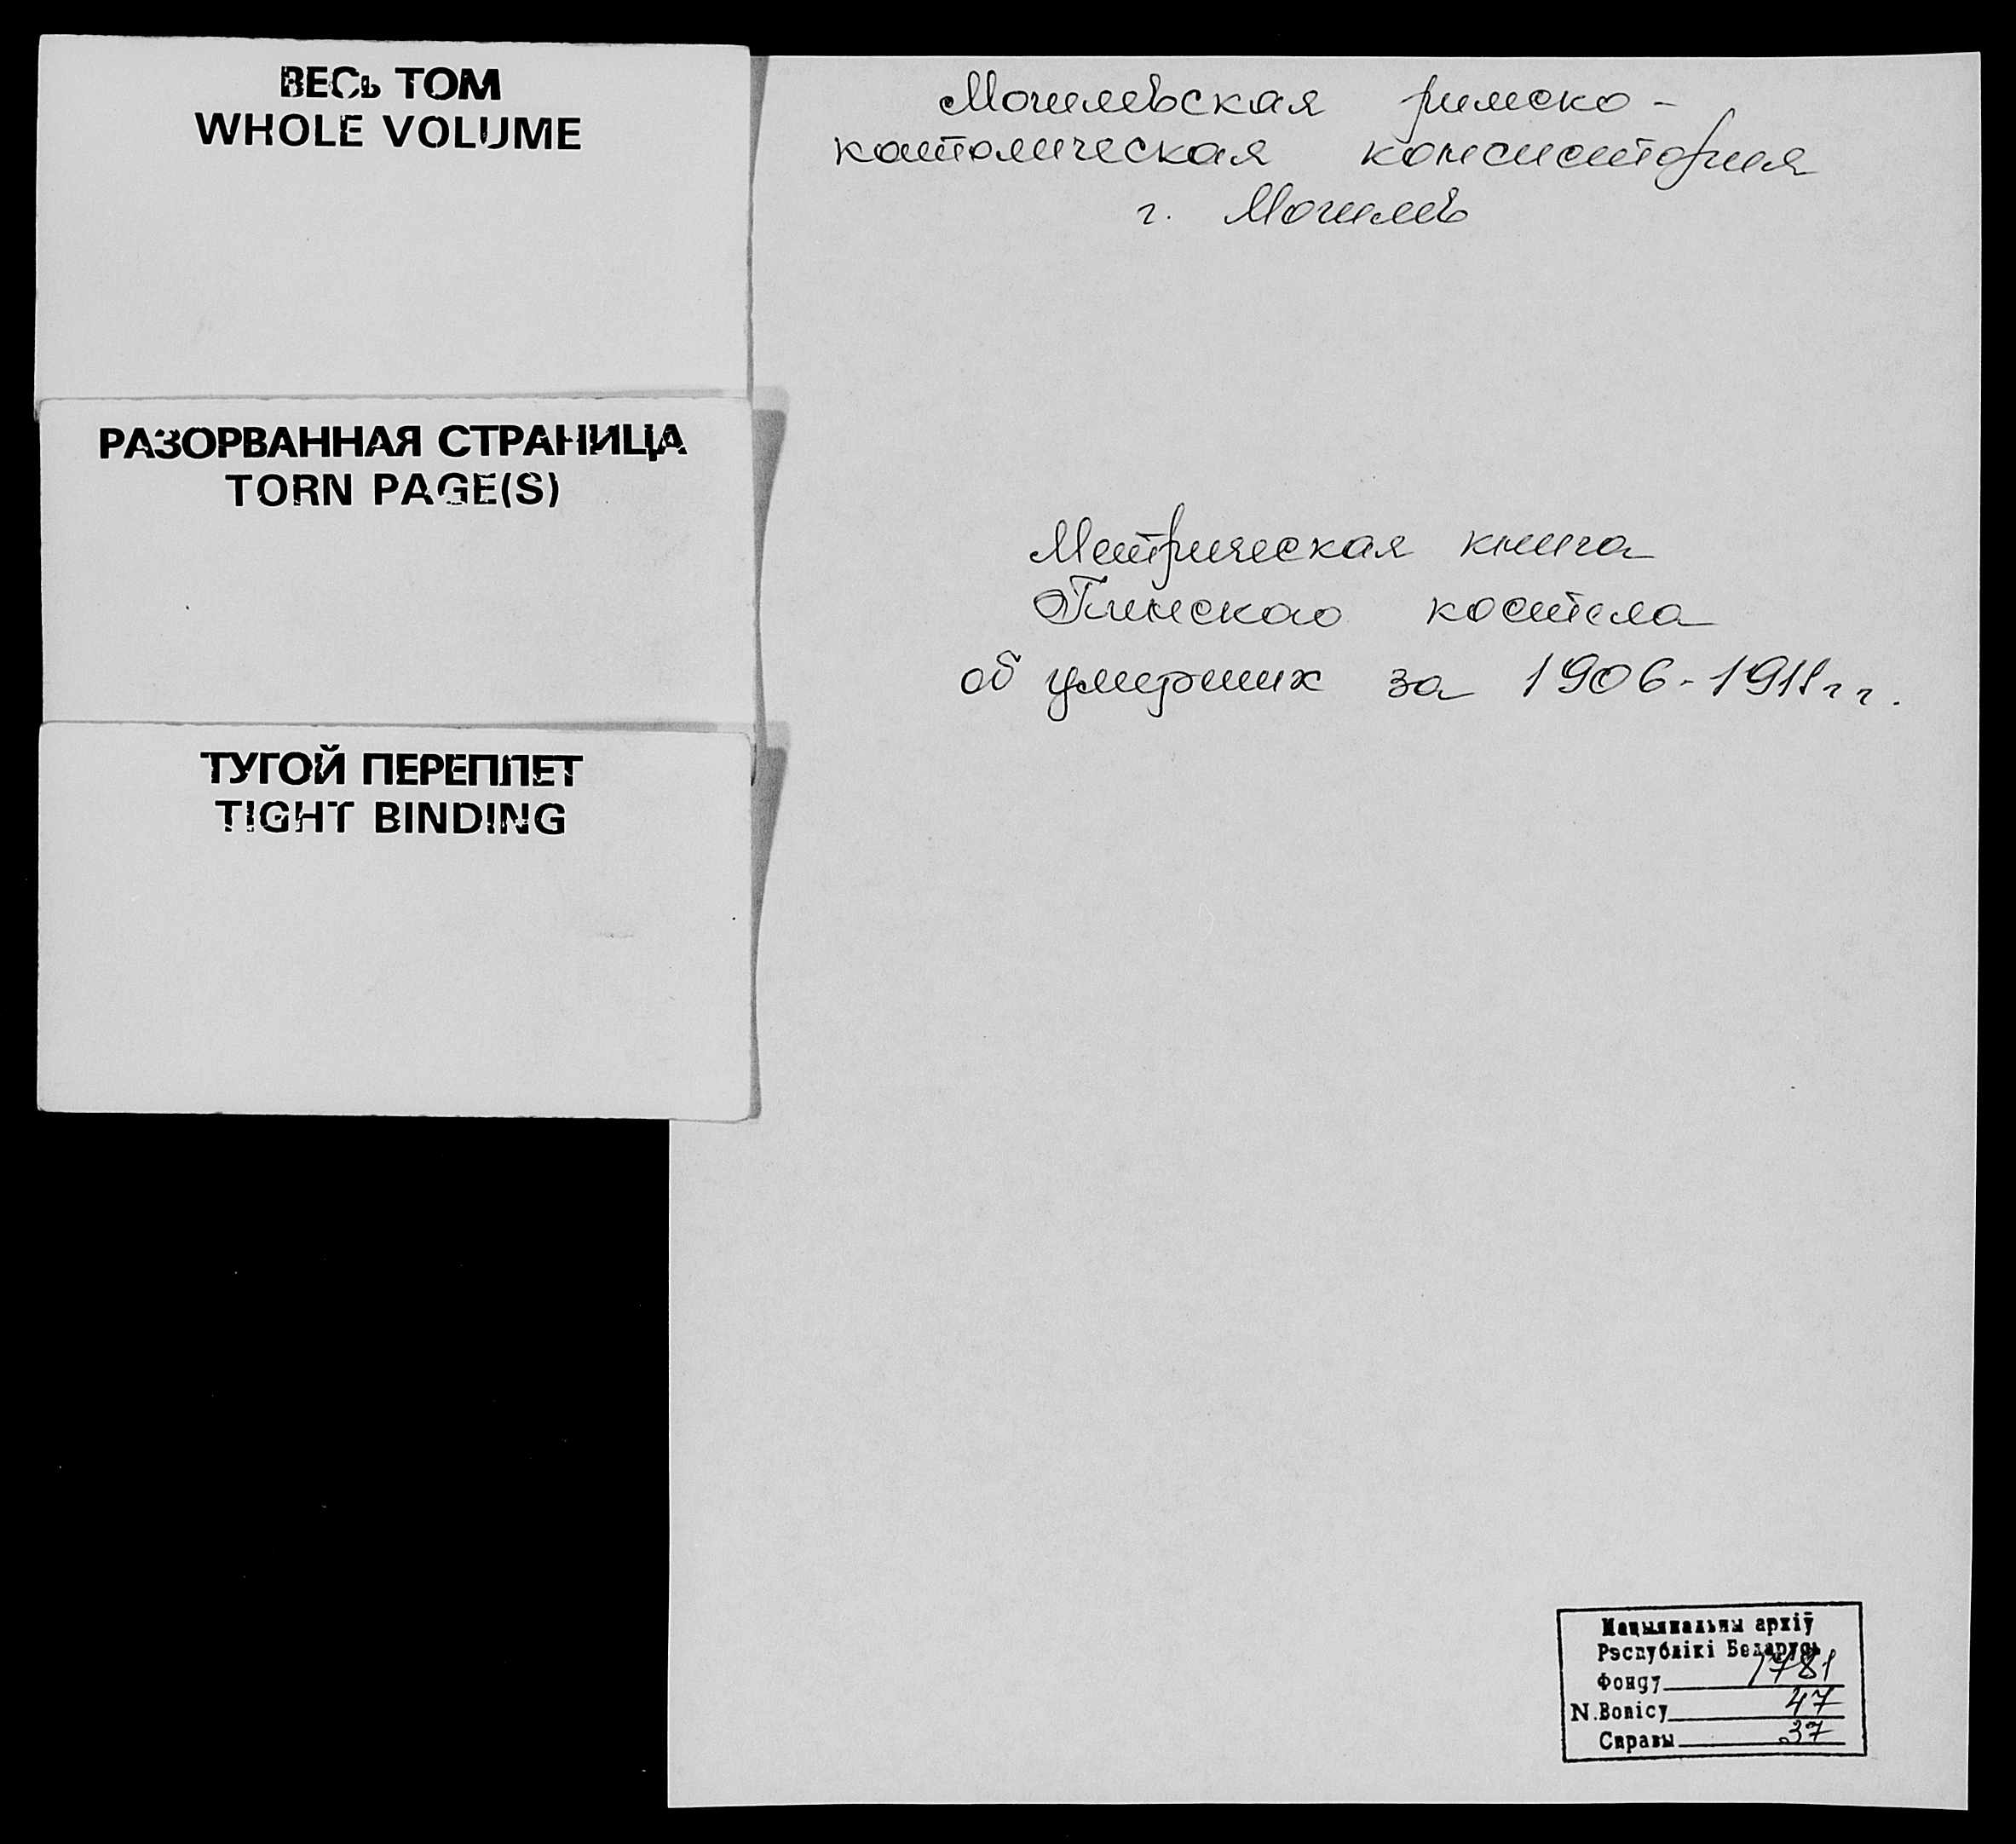 ВЕСЬ ТОМ
WHOLE VOLUME
РАЗОРВАННАЯ СТРАНИЦА
TORN PAGE(S)
ТУГОЙ ПЕРЕПЛЕТ
TIGHT BINDING
Могилевская римско-
католическая консистория
г. Могилев
Метрическая книга
костела
об умерших за 1906-1911 гг.
Нацыянальны архіў
Рэспублікі Беларусь
Фонду 1781
N.Вопісу 47
Справы 37